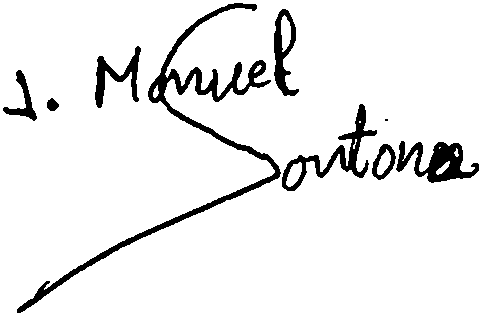 J. Manuel
Santana